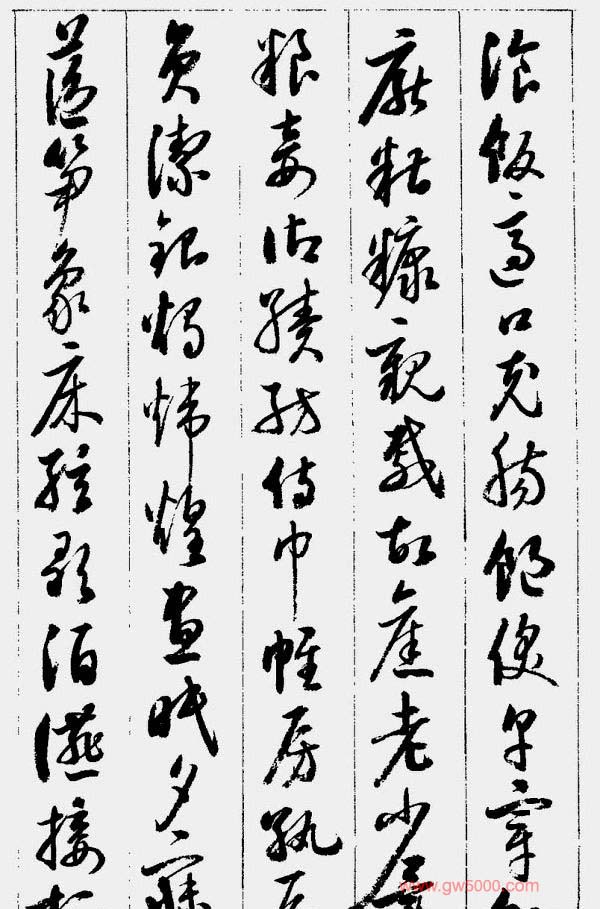 湌飯適口充腸飽飫享宰
厭糟糠親戚故舊老少異
粮妾御績紡侍巾帷房紈
員潔銀燭煒煌晝眠夕寐
藍笋象床絃歌酒讌接
www.gw5000.com